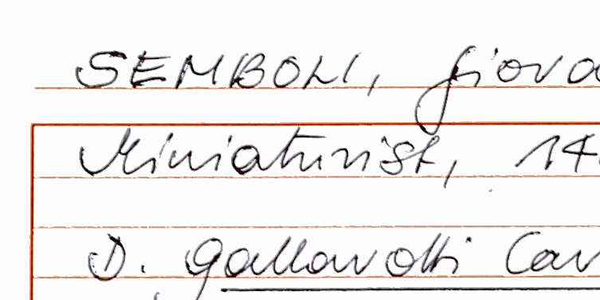 SEMBOLI, Giova
Miniaturist, 14
D. Gallavotti Cav